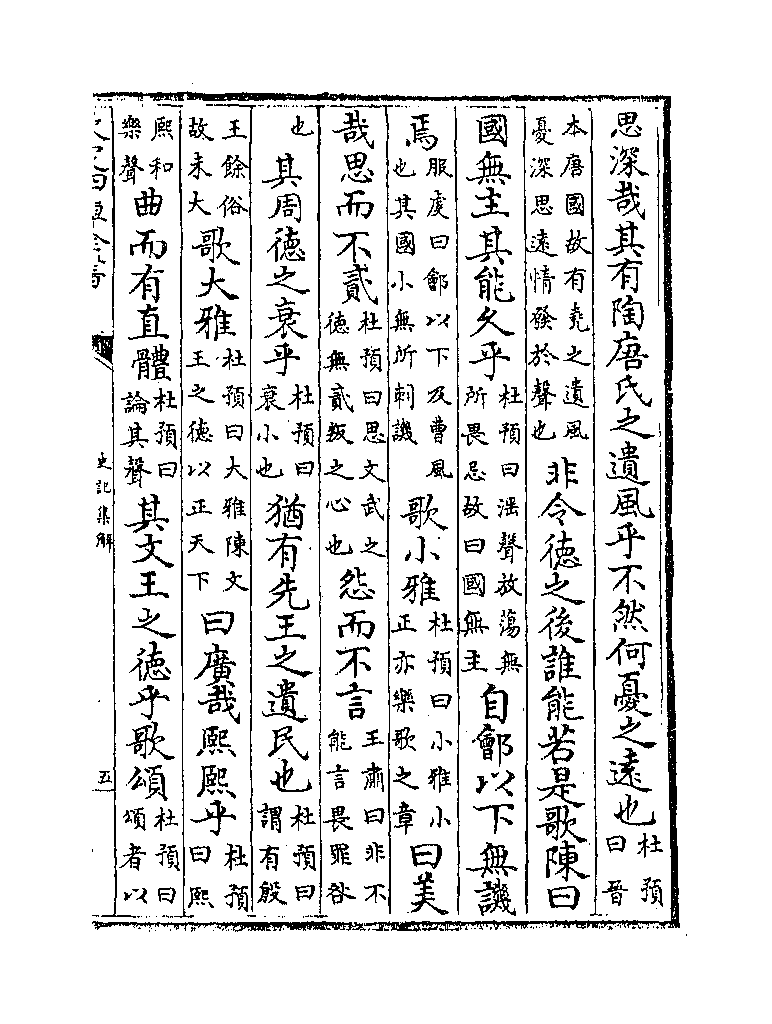 思深哉其有陶唐氏之遺風乎不然何憂之遠也杜預曰晉
本唐國故有堯之遺風憂深思遠情發於聲也非令徳之後誰能若是歌陳曰
國無主其能久乎杜預曰滛聲放蕩無所畏忌故曰國無主自鄶以下無譏
焉服䖍曰鄶以下及曹風也其國小無所刺譏歌小雅杜預曰小雅小正亦樂歌之章曰美
哉思而不貳杜預曰思文武之徳無貳叛之心也怨而不言王肅曰非不能言畏罪咎
也其周徳之衰乎杜預曰衰小也猶有先王之遺民也杜預曰謂有殷
王餘俗故未大歌大雅杜預曰大雅陳文王之徳以正天下曰廣哉熙熙乎杜預曰熙
熙和樂聲曲而有直體杜預曰論其聲其文王之徳乎歌頌杜預曰頌者以
史記集解
五